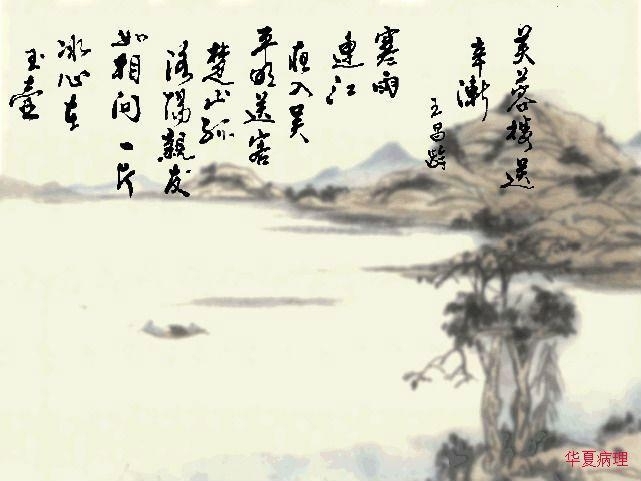 芙蓉楼送
辛渐
王昌龄
寒雨
连江
夜入吴
平明送客
楚山孤
洛陽親友
如相问一片
冰心在
玉壶
华夏病理